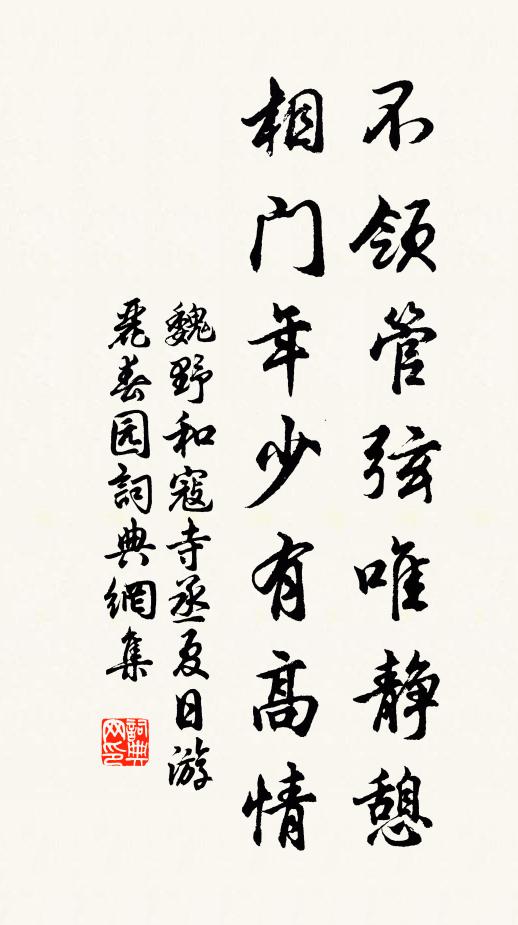 不领管弦唯静憩
相门年少有高情
魏野和寇寺丞夏日游
丽春园詞典網集
詞典网印